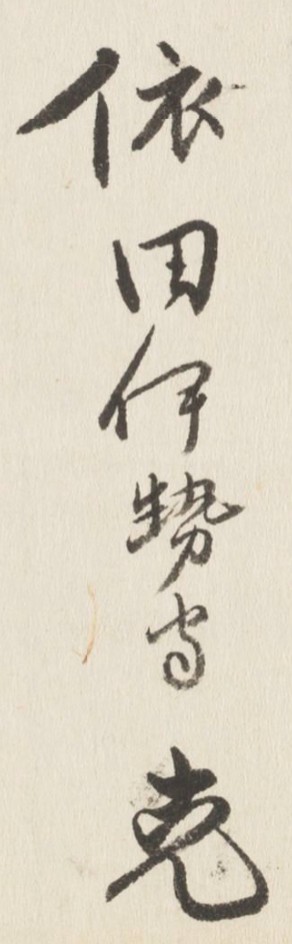 依田伊勢守 克